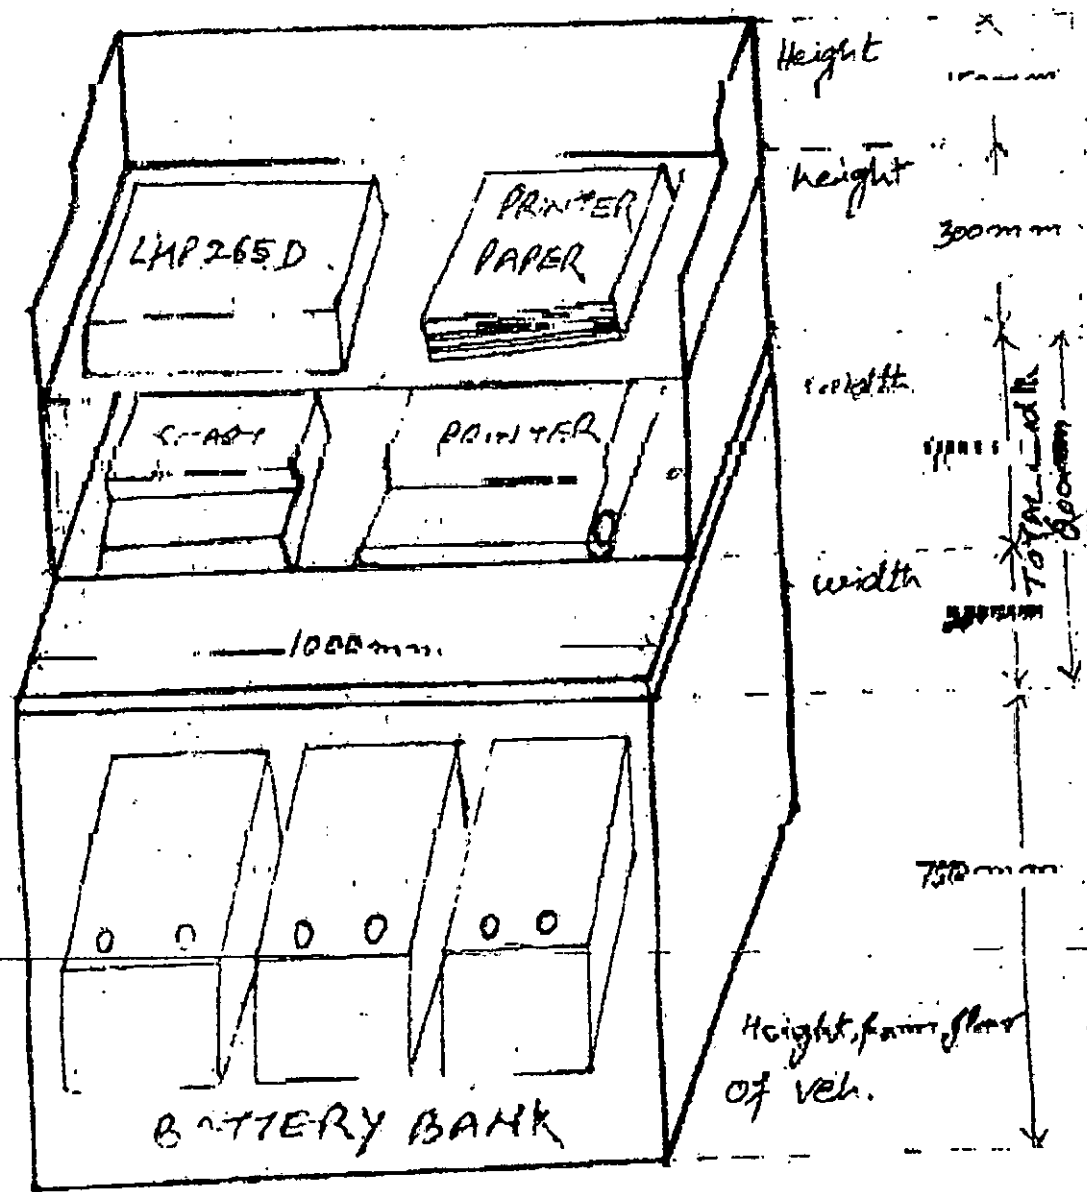 Height
height
300mm
LHP265D
PRINTER
PAPER
width
PRINTER
TOTAL width
width
1000mm
750mm
Height, from floor
of veh.
BATTERY BANK